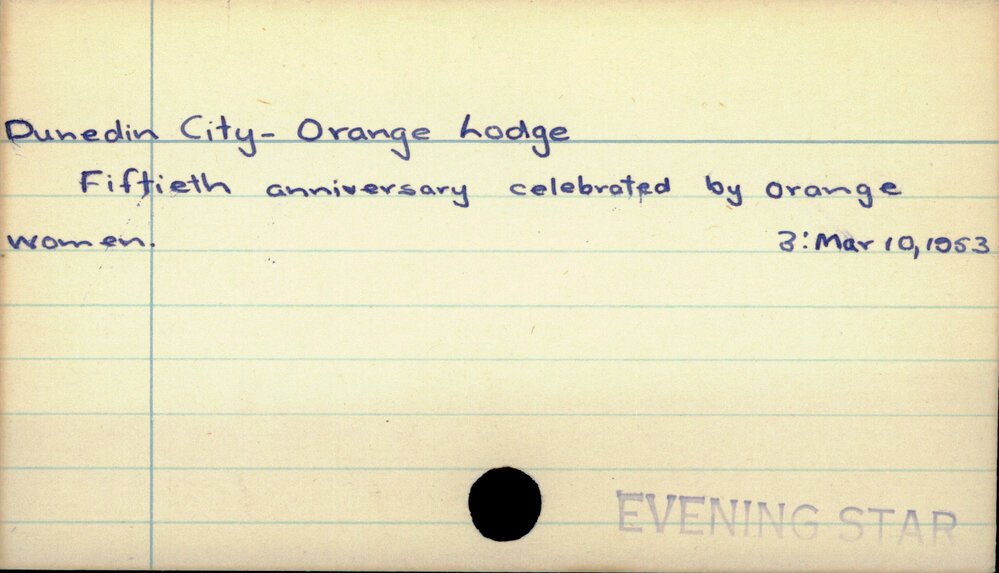 Dunedin City- Orange Lodge
Fiftieth anniversary celebrated by orange
women. 3: Mar 10, 1953
EVENING STAR